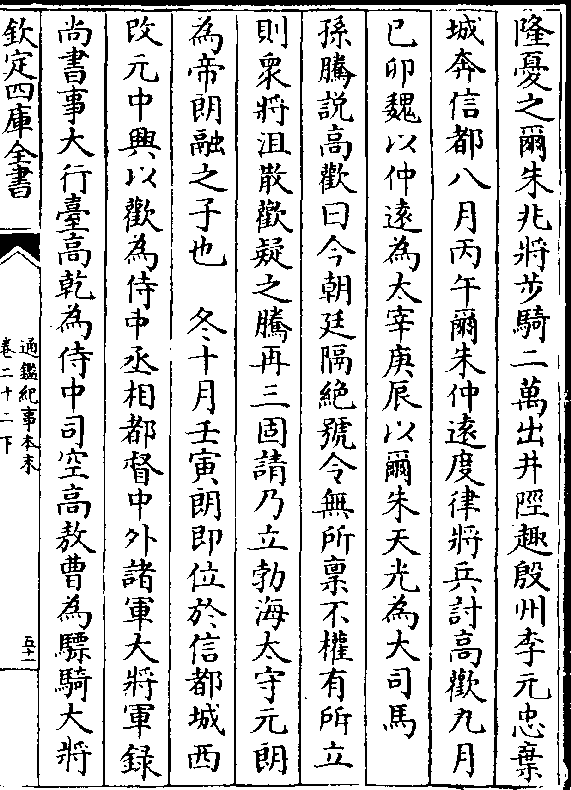 隆憂之爾朱兆將步騎二萬出井陘趣殷州李元忠棄
城奔信都八月丙午爾朱仲遠度律將兵討高歡九月
己卯魏以仲遠為太宰庚辰以爾朱天光為大司馬
孫騰説高歡曰今朝廷隔絶號令無所稟不權有所立
則衆將沮散歡疑之騰再三固請乃立勃海太守元朗
為帝朗融之子也　冬十月壬寅朗即位於信都城西
改元中興以歡為侍中丞相都督中外諸軍大將軍録
尚書事大行臺高乾為侍中司空高敖曹為驃騎大將
欽定四庫全書
通鑑紀事本末
卷二十二下